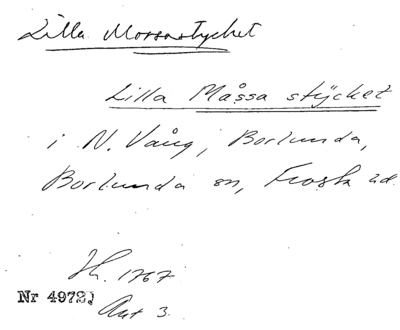 Lilla Mossastycket
Lilla Måssa stÿcket
i N. Vång, Borlunda,
Borlunda sn, Frosta hd.
Sk. 1767
Nr 4972)
Akt 3.